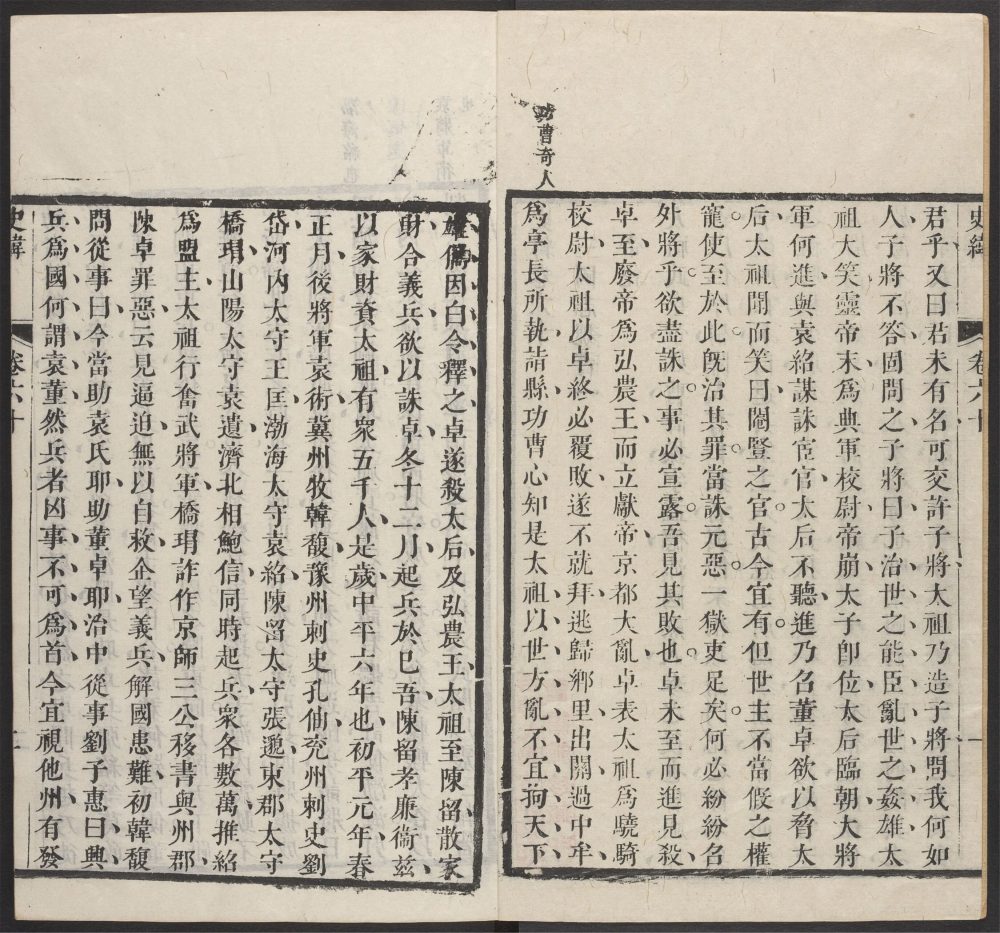 功曹奇人
史緯
卷六十
一
君乎又曰君未有名可交許子將太祖乃造子將問我何如
人子將不答固問之子將曰子治世之能臣亂世之姦雄太
祖大笑靈帝末爲典軍校尉帝崩太子卽位太后臨朝大將
軍何進與袁紹謀誅宦官太后不聽進乃召董卓欲以脅太
后太祖聞而笑曰閹豎之官古今宜有但世主不當假之權
寵使至於此旣治其罪當誅元惡一獄吏足矣何必紛紛召
外將乎欲盡誅之事必宣露吾見其敗也卓未至而進見殺
卓至廢帝爲弘農王而立獻帝京都大亂卓表太祖爲驍騎
校尉太祖以卓終必覆敗遂不就拜逃歸鄉里出關過中牟
爲亭長所執詣縣功曹心知是太祖以世方亂不宜拘天下
雄儁因白令釋之卓遂殺太后及弘農王太祖至陳留散家
財合義兵欲以誅卓冬十二月起兵於巳吾陳留孝廉衞茲
以家財資太祖有衆五千人是歲中平六年也初平元年春
正月後將軍袁術冀州牧韓馥豫州刺史孔伷兖州刺史劉
岱河內太守王匡渤海太守袁紹陳留太守張邈東郡太守
橋瑁山陽太守袁遺濟北相鮑信同時起兵衆各數萬推紹
爲盟主太祖行奮武將軍橋瑁詐作京師三公移書與州郡
陳卓罪惡云見逼迫無以自救企望義兵解國患難初韓馥
問從事曰今當助袁氏耶助董卓耶治中從事劉子惠曰興
兵爲國何謂袁董然兵者凶事不可爲首今宜視他州有發
史緯
卷六十
二